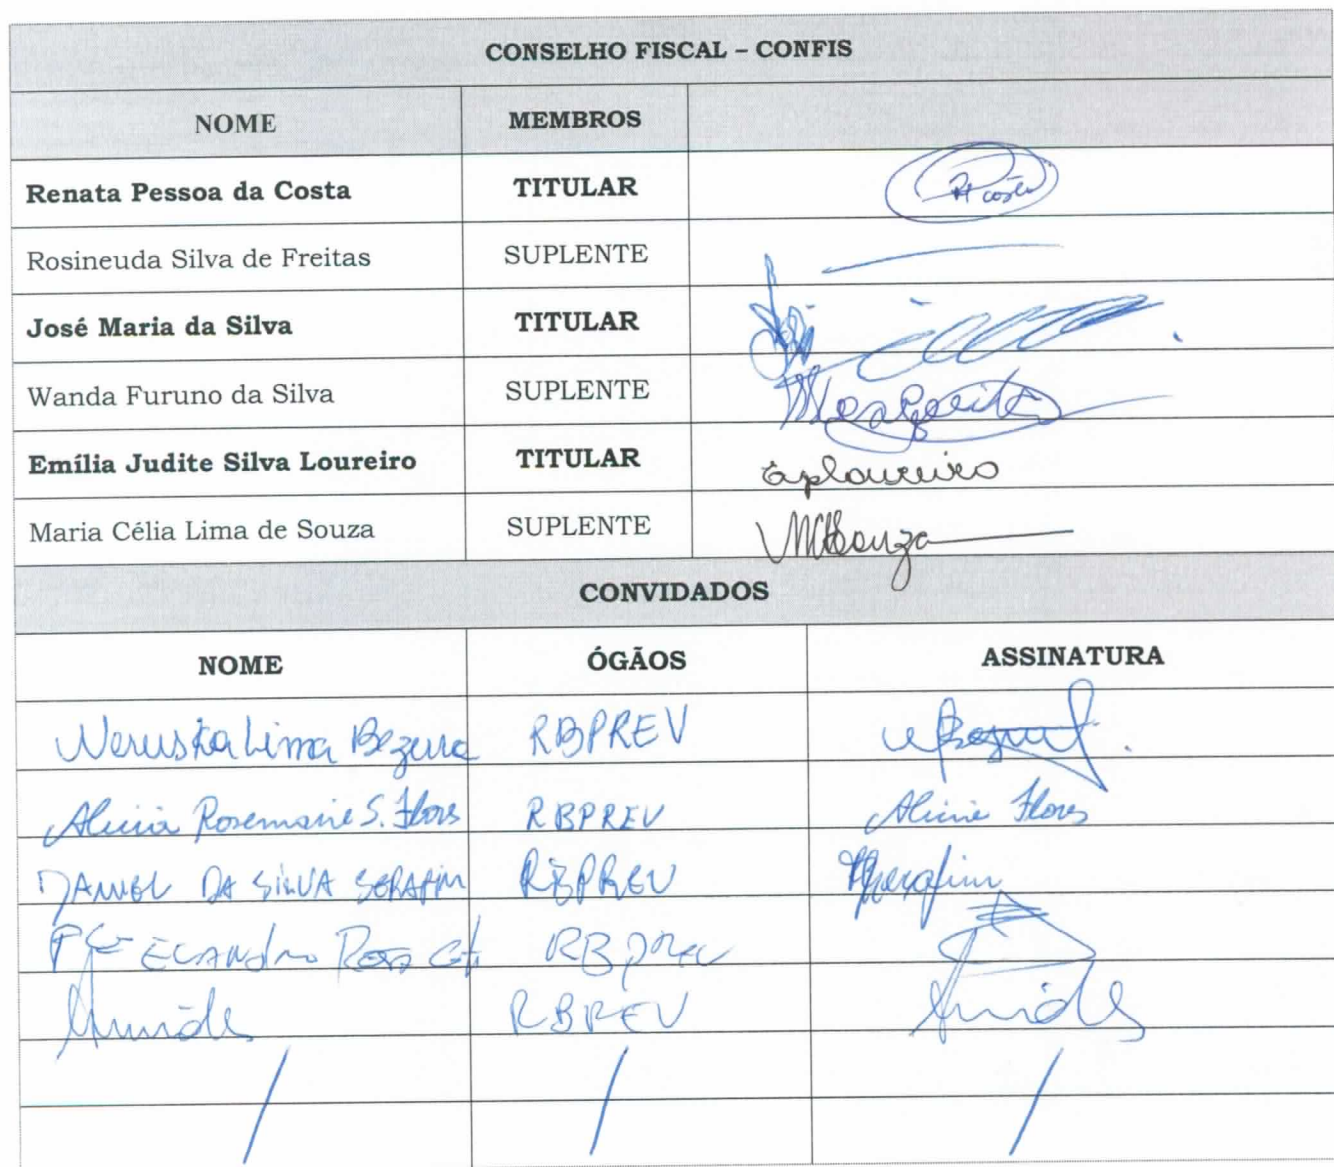 CONSELHO FISCAL – CONFIS
NOME MEMBROS
Renata Pessoa da Costa TITULAR
Rosineuda Silva de Freitas SUPLENTE
José Maria da Silva TITULAR
Wanda Furuno da Silva SUPLENTE
Emília Judite Silva Loureiro TITULAR
Maria Célia Lima de Souza SUPLENTE
CONVIDADOS
NOME ÓGÃOS ASSINATURA
Weruska Lima Bezerra RBPREV
Alicia Rosemarie S. Flores RBPREV Alicia Flores
DANIEL DA SILVA SERAFIM RBPREV
RBPREV
RBPREV